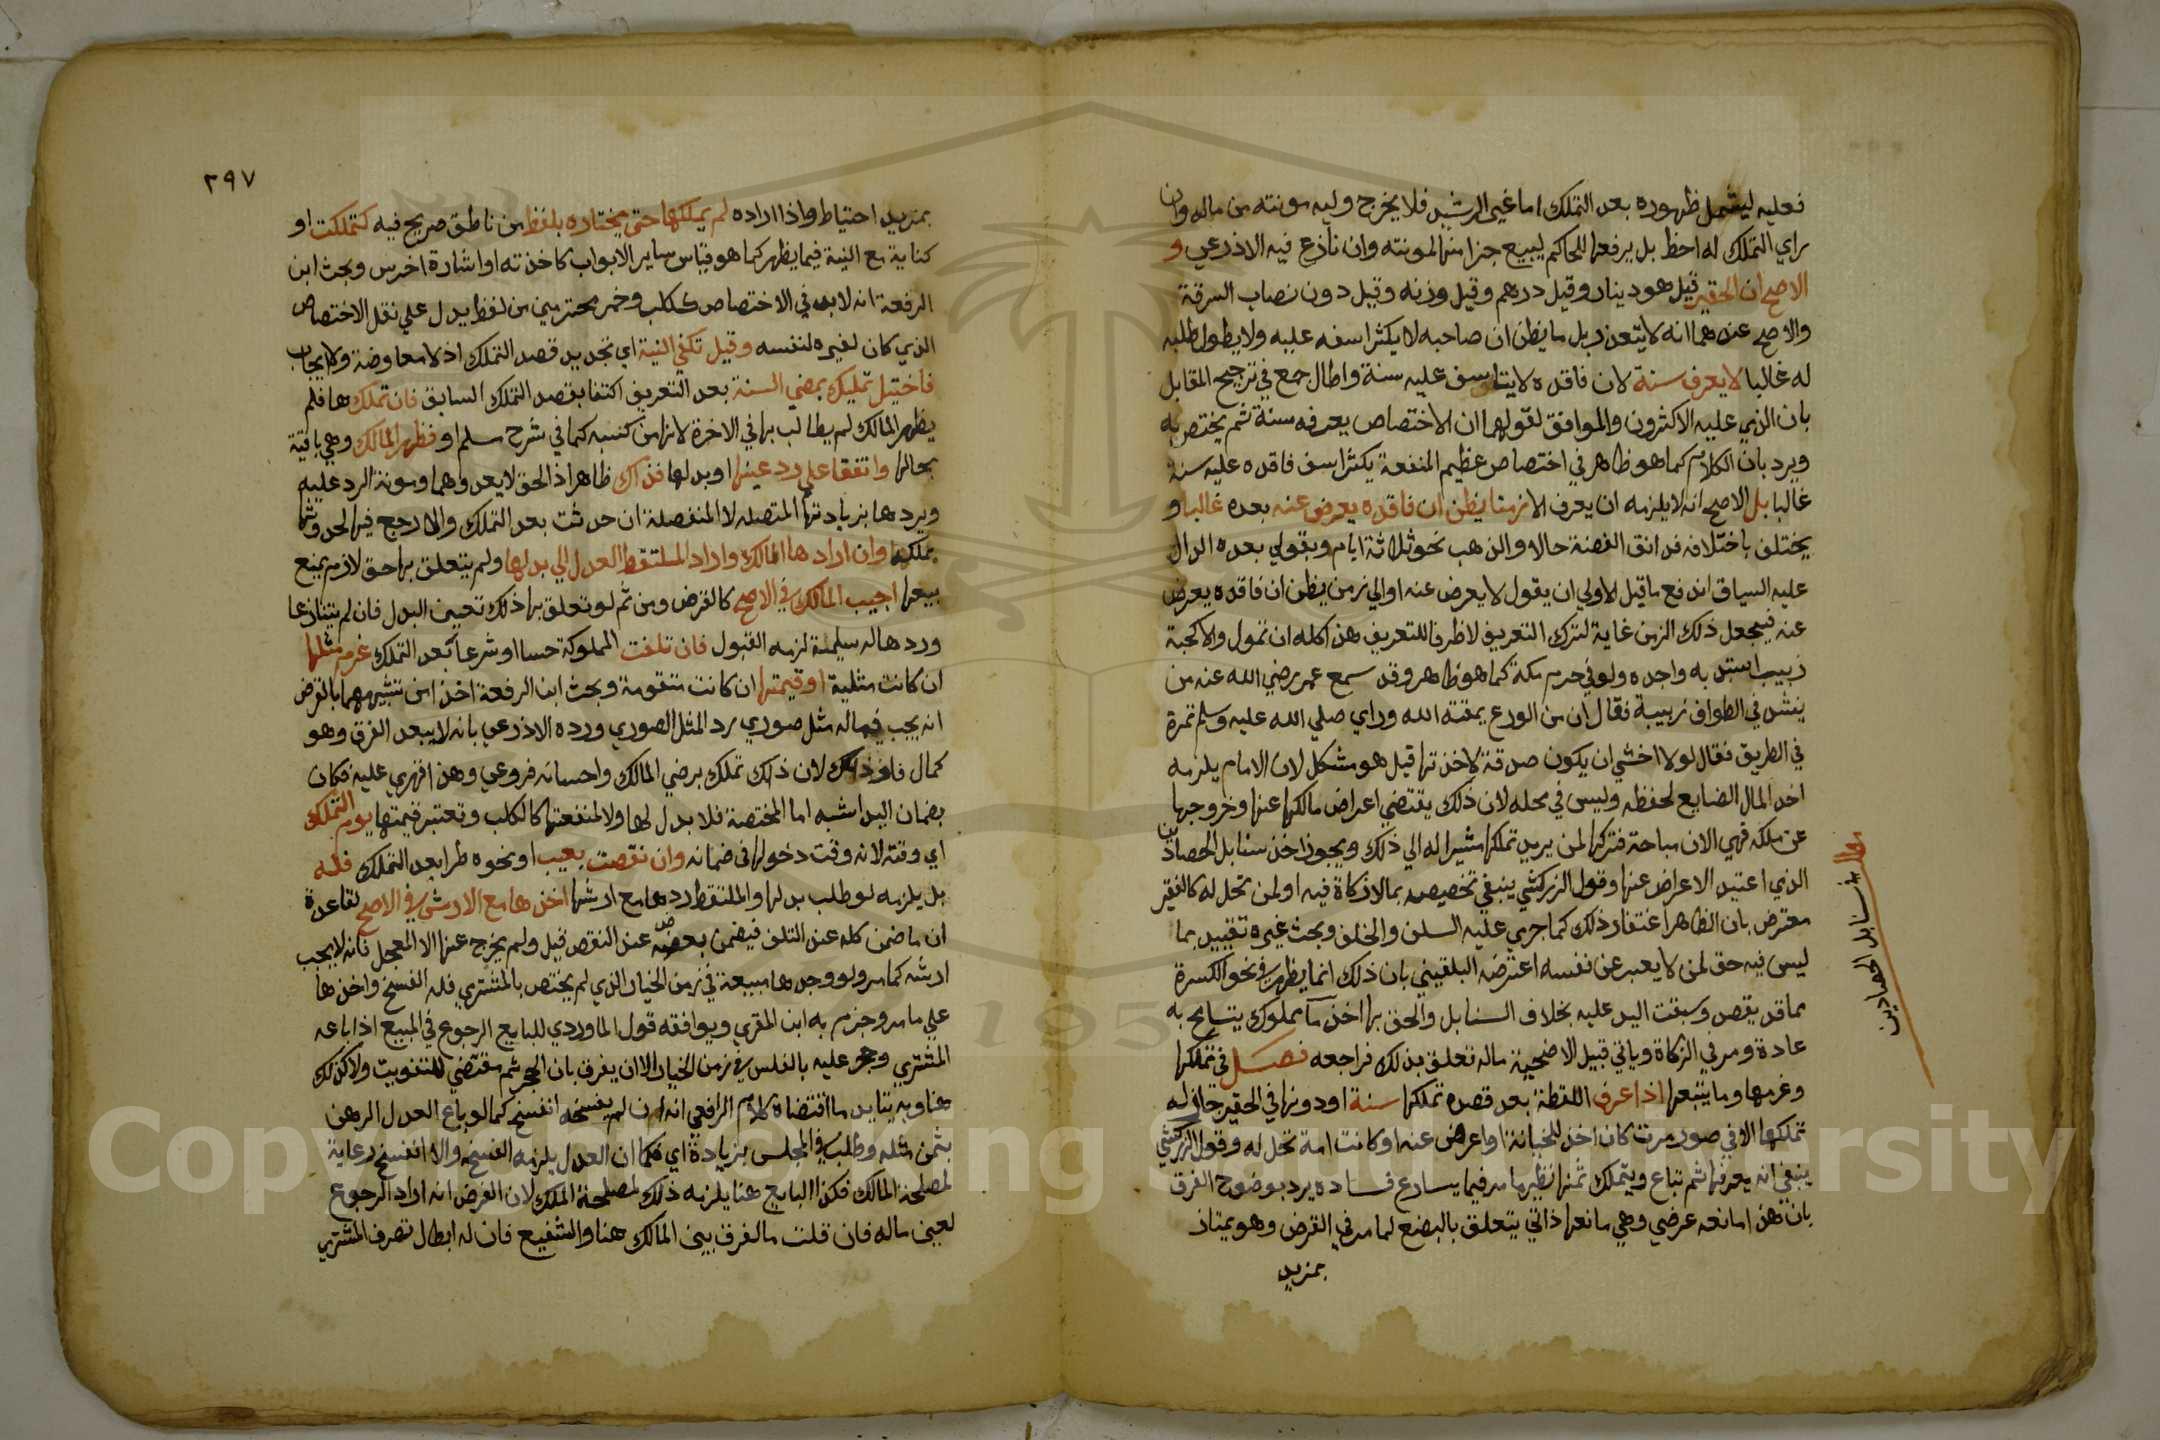 فعليه ليشمل ظهوره بعد التملك اما غير الرشيد فلا يخرج وليه مونته من ماله وان
راي التملك له احظ بل يرفعها للحاكم ليبيع جزا منها لمونته وان نازع فيه الاذرعي و
الاصح ان الحقير قيل هو دينار وقيل درهم وقيل وزنه وقيل دون نصاب السرقة
والاصح عندهما انه لا يتقدر بل ما يظن ان صاحبه لا يكثر اسفه عليه ولا يطول طلبه
له غالبا لا يعرف سنة لان فاقده لا يتاسف عليه سنة واطال جمع في ترجيح المقابل
بان الذي عليه الاكثرون والموافق لقولهما ان الاختصاص يعرفه سنة ثم يختص به
ويرد بان الكلام كما هو ظاهر في اختصاص عظيم المنفعة يكثر اسف فاقده عليه سنة
غالبا بل الاصح انه لا يلزمه ان يعرف الا زمنا يظن ان فاقده يعرض عنه بعده غالبا و
يختلف باختلافه فدانق الفضة حالا والذهب نحو ثلاثة ايام وبقولي بعده الدال
عليه السياق اندفع ما قيل الاولي ان يقول لا يعرض عنه او الي زمن يظن ان فاقده يعرض
عنه فيجعل ذلك الزمن غاية لترك التعريف لا ظرفا للتعريف هذا كله ان تمول والا كحبة
زبيب استبد به واجده ولو في حرم مكة كما هو ظاهر وقد سمع عمر رضي الله عنه من
ينشد في الطواف زبيبة فقال ان من الورع يمقته الله وراي صلي الله عليه وسلم تمرة
في الطريق فقال لولا اخشي ان يكون صدقة لاخذتها قيل هو مشكل لان الامام يلزمه
اخذ المال الضايع لحفظه وليس في محله لان ذلك يقتضي اعراض مالكها عنها وخروجها
عن ملكه فهي الان مباحة فتركها لمن يريد تملكها مشيرا له الي ذلك ويجوز اخذ سنابل الحصادين
الذي اعتيد الاعراض عنها وقول الزركشي ينبغي تخصيصه بما لا زكاة فيه او لمن تحل له كالفقير
معترض بان الظاهر اغتفار ذلك كما جري عليه السلف والخلف وبحث غيره تقييده بما
ليس فيه حق لمن لا يعبر عن نفسه اعترضه البلقيني بان ذلك انما يظهر في نحو الكسرة
مما قد يقصد وسبقت اليد عليه بخلاف السنابل والحق بها اخذ ما مملوك يتسامح به
عادة ومر في الزكاة وياتي قبيل الاضحية ماله تعلق بذلك فراجعه فصل في تملكها
وغرمها وما يتبعها اذا عرف اللقطة بعد قصده تملكها سنة او دونها في الحقير جاز له
تملكها الا في صور مرت كان اخذ للخيانة او اعرض عنه او كانت امة تحل له وقول الزركشي
ينبغي انه يعرفها ثم تباع ويتملك ثمنها نظير ما مر فيما يسارع فساده يرد بوضوح الفرق
بان هذا مانعه عرضي وهي مانعها ذاتي يتعلق بالبضع لما مر في القرض وهو يمتاز
بمزيد
سنابل الحصادين
٢٩٧
بمزيد احتياط واذا اراده لم يملكها حتي يختاره بلفظ من ناطق صريح فيه كتملكت او
كناية مع النية فيما يظهر كما هو قياس ساير الابواب كاخذته او اشارة اخرس وبحث ابن
الرفعة انه لا بد في الاختصاص ككلب وخمر محترمين من لفظ يدل علي نقل الاختصاص
الذي كان لغيره لنفسه وقيل تكفي النية اي تجديد قصد التملك اذ لا معاوضة ولا ايجاب
بمضي السنة بعد التعريف اكتفا بقصد التملك السابق فان تملكها فلم
يظهر المالك لم يطالب بها في الاخرة لانها من كسبه كما في شرح مسلم او فظهر المالك وهي باقية
بحالها واتفقا علي رد عينها او بدلها فذاك ظاهر اذ الحق لا يعدوهما ومونة الرد عليه
ويردها بزيادتها المتصلة لا المنفصلة ان حدثت بعد التملك والا رجع فيها لحدوثها
بملكه وان ارادها المالك واراد الملتقط العدول الي بدلها ولم يتعلق بها حق لازم يمنع
بيعها اجيب المالك في الاصح كالقرض ومن ثم لو تعلق بها ذلك تعين البدل فان لم يتنازعا
وردها له سليمة لزمه القبول فان تلفت المملوكة حسا او شرعا بعد التملك غرم مثلها
ان كانت مثلية او قيمتها ان كانت متقومة وبحث ابن الرفعة اخذا من تشبيههما بالقرض
انه يجب فيما له مثل صوري رد المثل الصوري ورده الاذرعي بانه لا يبعد الفرق وهو
كمال قال لان ذلك تملك برضي المالك واحسانه فروعي وهذا قهري عليه فكان
بضمان اليد اشبه اما المختصة فلا بدل لها ولا لمنفعتها كالكلب وتعتبر قيمتها يوم التملك
اي وقته لانه وقت دخولها في ضمانه وان نقصت بعيب او نحوه طرا بعد التملك فله
بل يلزمه لو طلب بدلها والملتقط ردها مع ارشها اخذها مع الارش في الاصح لقاعدة
ان ما ضمن كله عند التلف فيضمن بعضه عند النقص قيل ولم يخرج عنها الا المعجل فانه لا يجب
ارشه كما مر ولو وجدها مبيعة في زمن الخيار الذي لم يختص بالمشتري فله الفسخ واخذها
علي ما مر وجزم به ابن المقري ويوافقه قول الماوردي للبايع الرجوع في المبيع اذا باعه
المشتري وحجر عليه بالفلس في زمن الخيار الا ان يفرق بان الحجر ثم مقتضي للتفويت ولا كذلك
هنا وبه يتايد ما اقتضاه كلام الرافعي انه ان لم يفسخه انفسخ كما لو باع العدل الرهن
بثمن مثله وطلب في المجلس بزيادة اي فكما ان العدل يلزمه الفسخ والا انفسخ رعاية
لمصلحة المالك فكذا البايع هنا يلزمه ذلك لمصلحة الملك لان الفرض انه اراد الرجوع
لعين ماله فان قلت ما الفرق بين المالك هنا والشفيع فان له ابطال تصرف المشتري